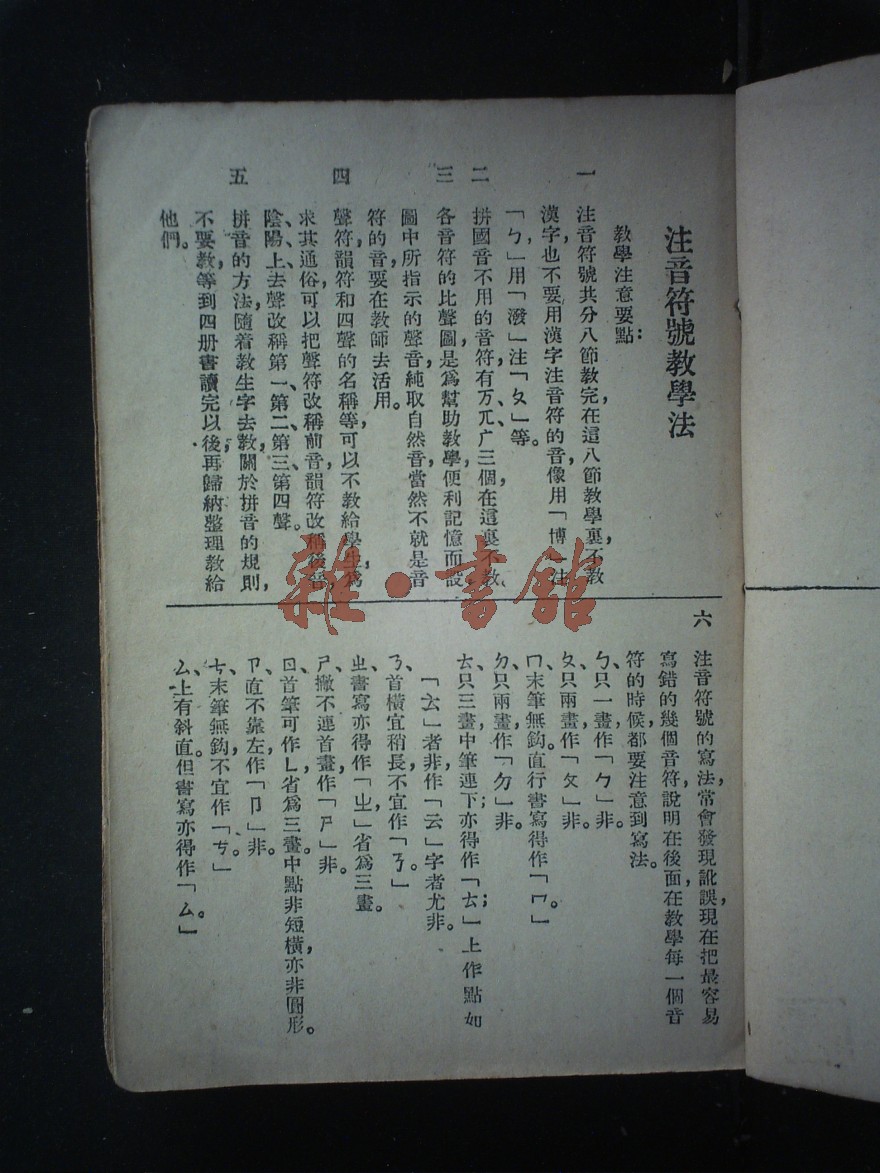 注音符號教學法
教學注意要點：
一　注音符號共分八節教完，在這八節教學裏，不教
漢字，也不要用漢字注音符的音，像用「博」注
「ㄅ」，用「潑」注「ㄆ」等。
二　拼國音不用的音符有万、兀、广三個，在這裏不教，
三　各音符的比聲圖，是爲幫助教學便利記憶而設，
圖中所指示的聲音，純取自然音，當然不就是音
符的音，要在教師去活用。
四　聲符，韻符和四聲的名稱等，可以不教給學生，爲
求其通俗，可以把聲符改稱前音，韻符改稱後音，
陰、陽、上、去聲改稱第一、第二、第三、第四聲。
五　拼音的方法，隨着教生字去教，關於拼音的規則，
不要教，等到四册書讀完以後，再歸納整理教給
他們。
六　注音符號的寫法，常會發現訛誤，現在把最容易
寫錯的幾個音符，說明在後面，在教學每一個音
符的時候，都要注意到寫法。
ㄅ、只一畫，作「勹」非。
ㄆ、只兩畫，作「攵」非。
ㄇ、末筆無鈎，直行書寫得作「冖」。
ㄉ、只兩畫，作「勿」非。
ㄊ、只三畫，中筆連下；亦得作「ㄊ」；上作點如
「𠫓」者非，作「云」字者尤非。
ㄋ、首橫宜稍長，不宜作「ㄋ」。
ㄓ、書寫亦得作「ㄓ」，省爲三畫。
ㄕ、撇不連首畫，作「尸」非。
ㄖ、首筆可作ㄴ，省爲三畫，中點非短橫，亦非圓形。
ㄗ、直不靠左，作「卩」非。
ㄘ、末筆無鈎，不宜作「ㄘ」。
ㄙ、上有斜直，但書寫亦得作「厶」。
雜·書館